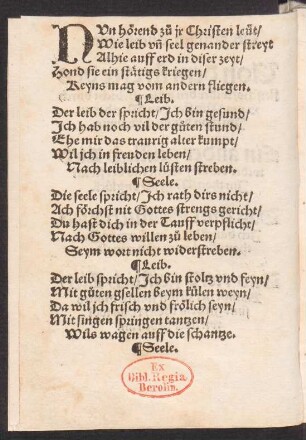 NUn hörend zů jr Christen leüt/
Wie leib vñ seel genander streyt
Alhie auff erd in diser zeyt/
Hond sie ein stätigs kriegen/
Keyns mag vom andern fliegen.
¶Leib.
Der leib der spricht/Ich bin gesund/
Ich hab noch vil der gůten stund/
Ehe mir das traurig alter kumpt/
Wil ich in freuden leben/
Nach leiblichen lüsten streben.
¶Seele.
Die seele spricht/Ich rath dirs nicht/
Ach förchst nit Gottes strengs gericht/
Du hast dich in der Tauff verpflicht/
Nach Gottes willen zů leben/
Seym wort nicht widerstreben.
¶Leib.
Der leib spricht/Ich bin stoltz vnd feyn/
Mit gůten gsellen beym külen weyn/
Da wil ich frisch vnd frölich seyn/
Mit singen springen tantzen/
Wils wagen auff die schantze.
¶Seele.
Ex
Bibl. Regia
Berolin.